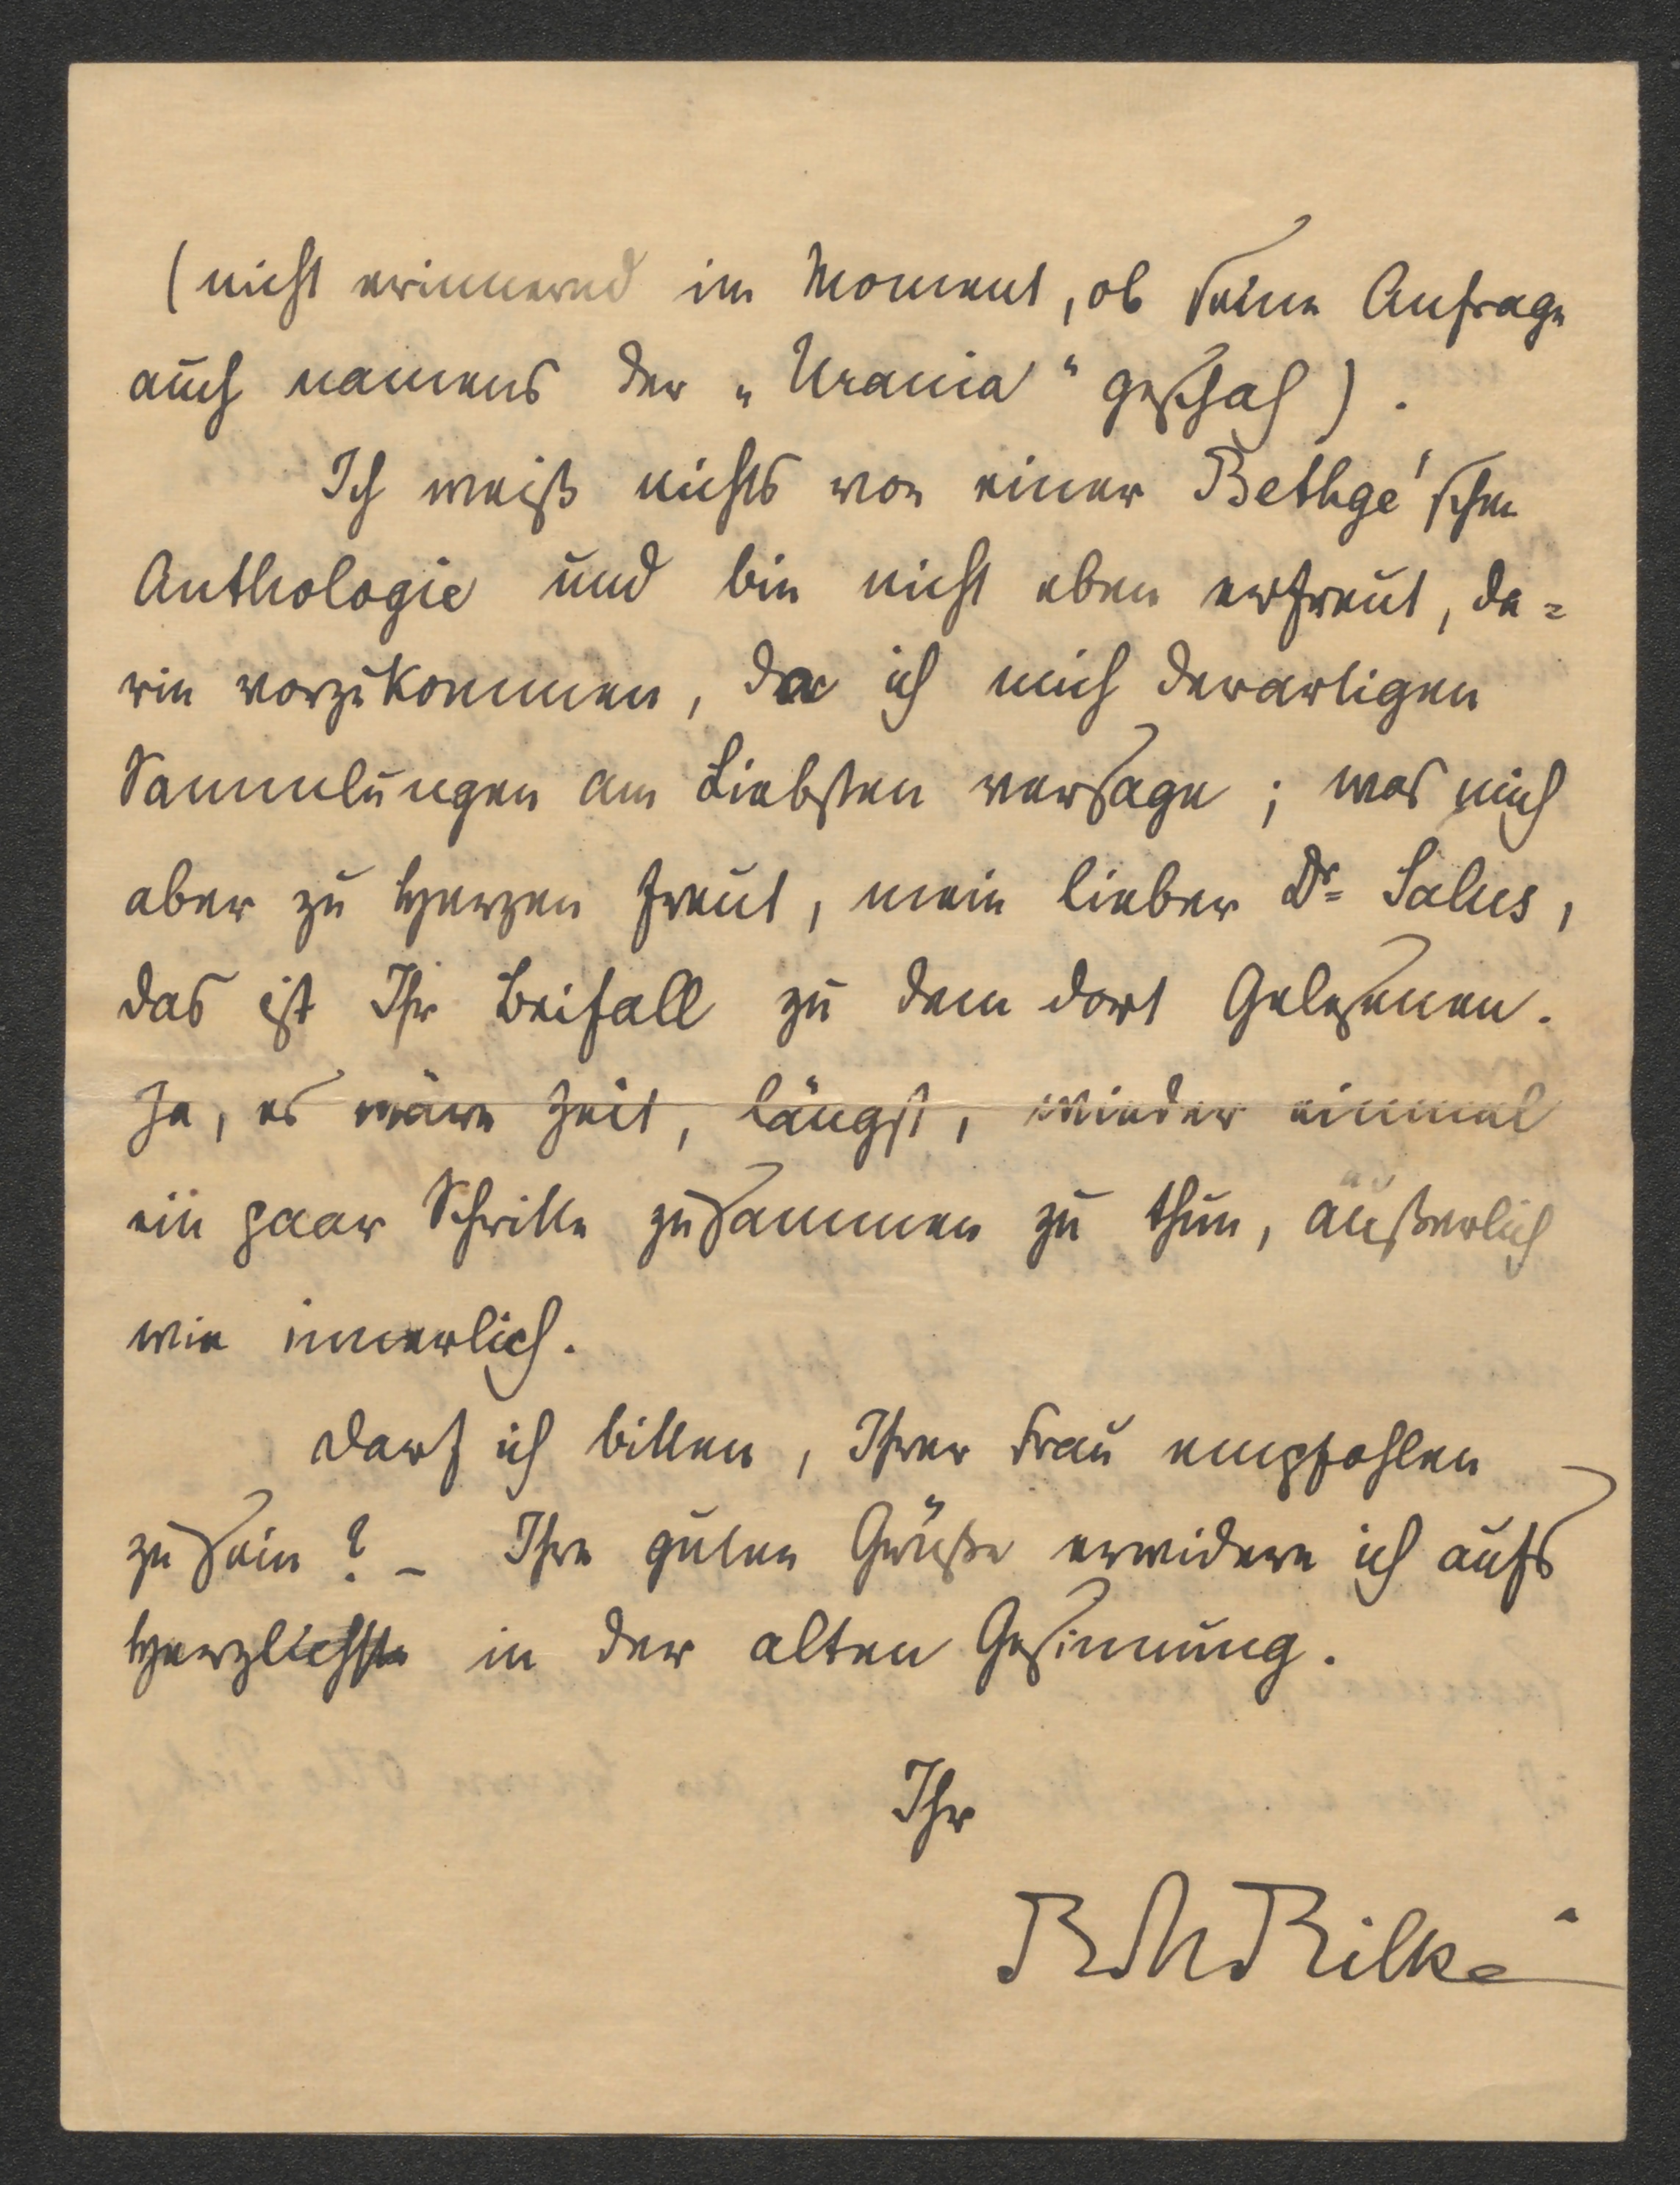 (nicht erinnernd im Moment, ob seine Anfrage
auch namens der „Urania" geschah).
Ich weiß nichts von einer Bethge'schen
Anthologie und bin nicht eben erfreut, da=
rin vorzukommen, da ich mich derartigen
Sammlungen am Liebsten versage; was mich
aber zu Herzen freut, mein lieber Dr= Salus,
das ist Ihr Beifall zu dem dort Gelesenen.
Ja, es wäre Zeit, längst, wieder einmal
ein paar Schritte zusammen zu thun, äußerlich
wie innerlich.
Darf ich bitten, Ihrer Frau empfohlen
zu sein? – Ihre guten Grüße erwidere ich aufs
Herzlichste in der alten Gesinnung.
Ihr
RMRilke